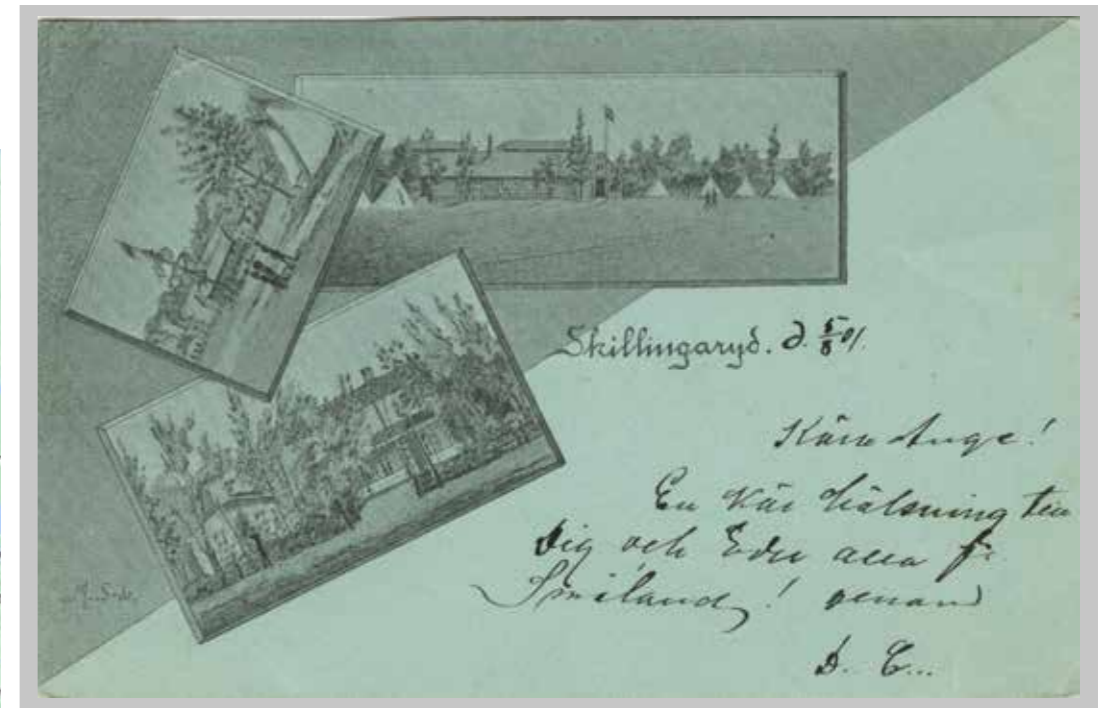 Skillingaryd. d. 5/8 01.
Kära Ange!
En kär hälsning till
Dig och Eder alla fr.
Småland!
D. C...